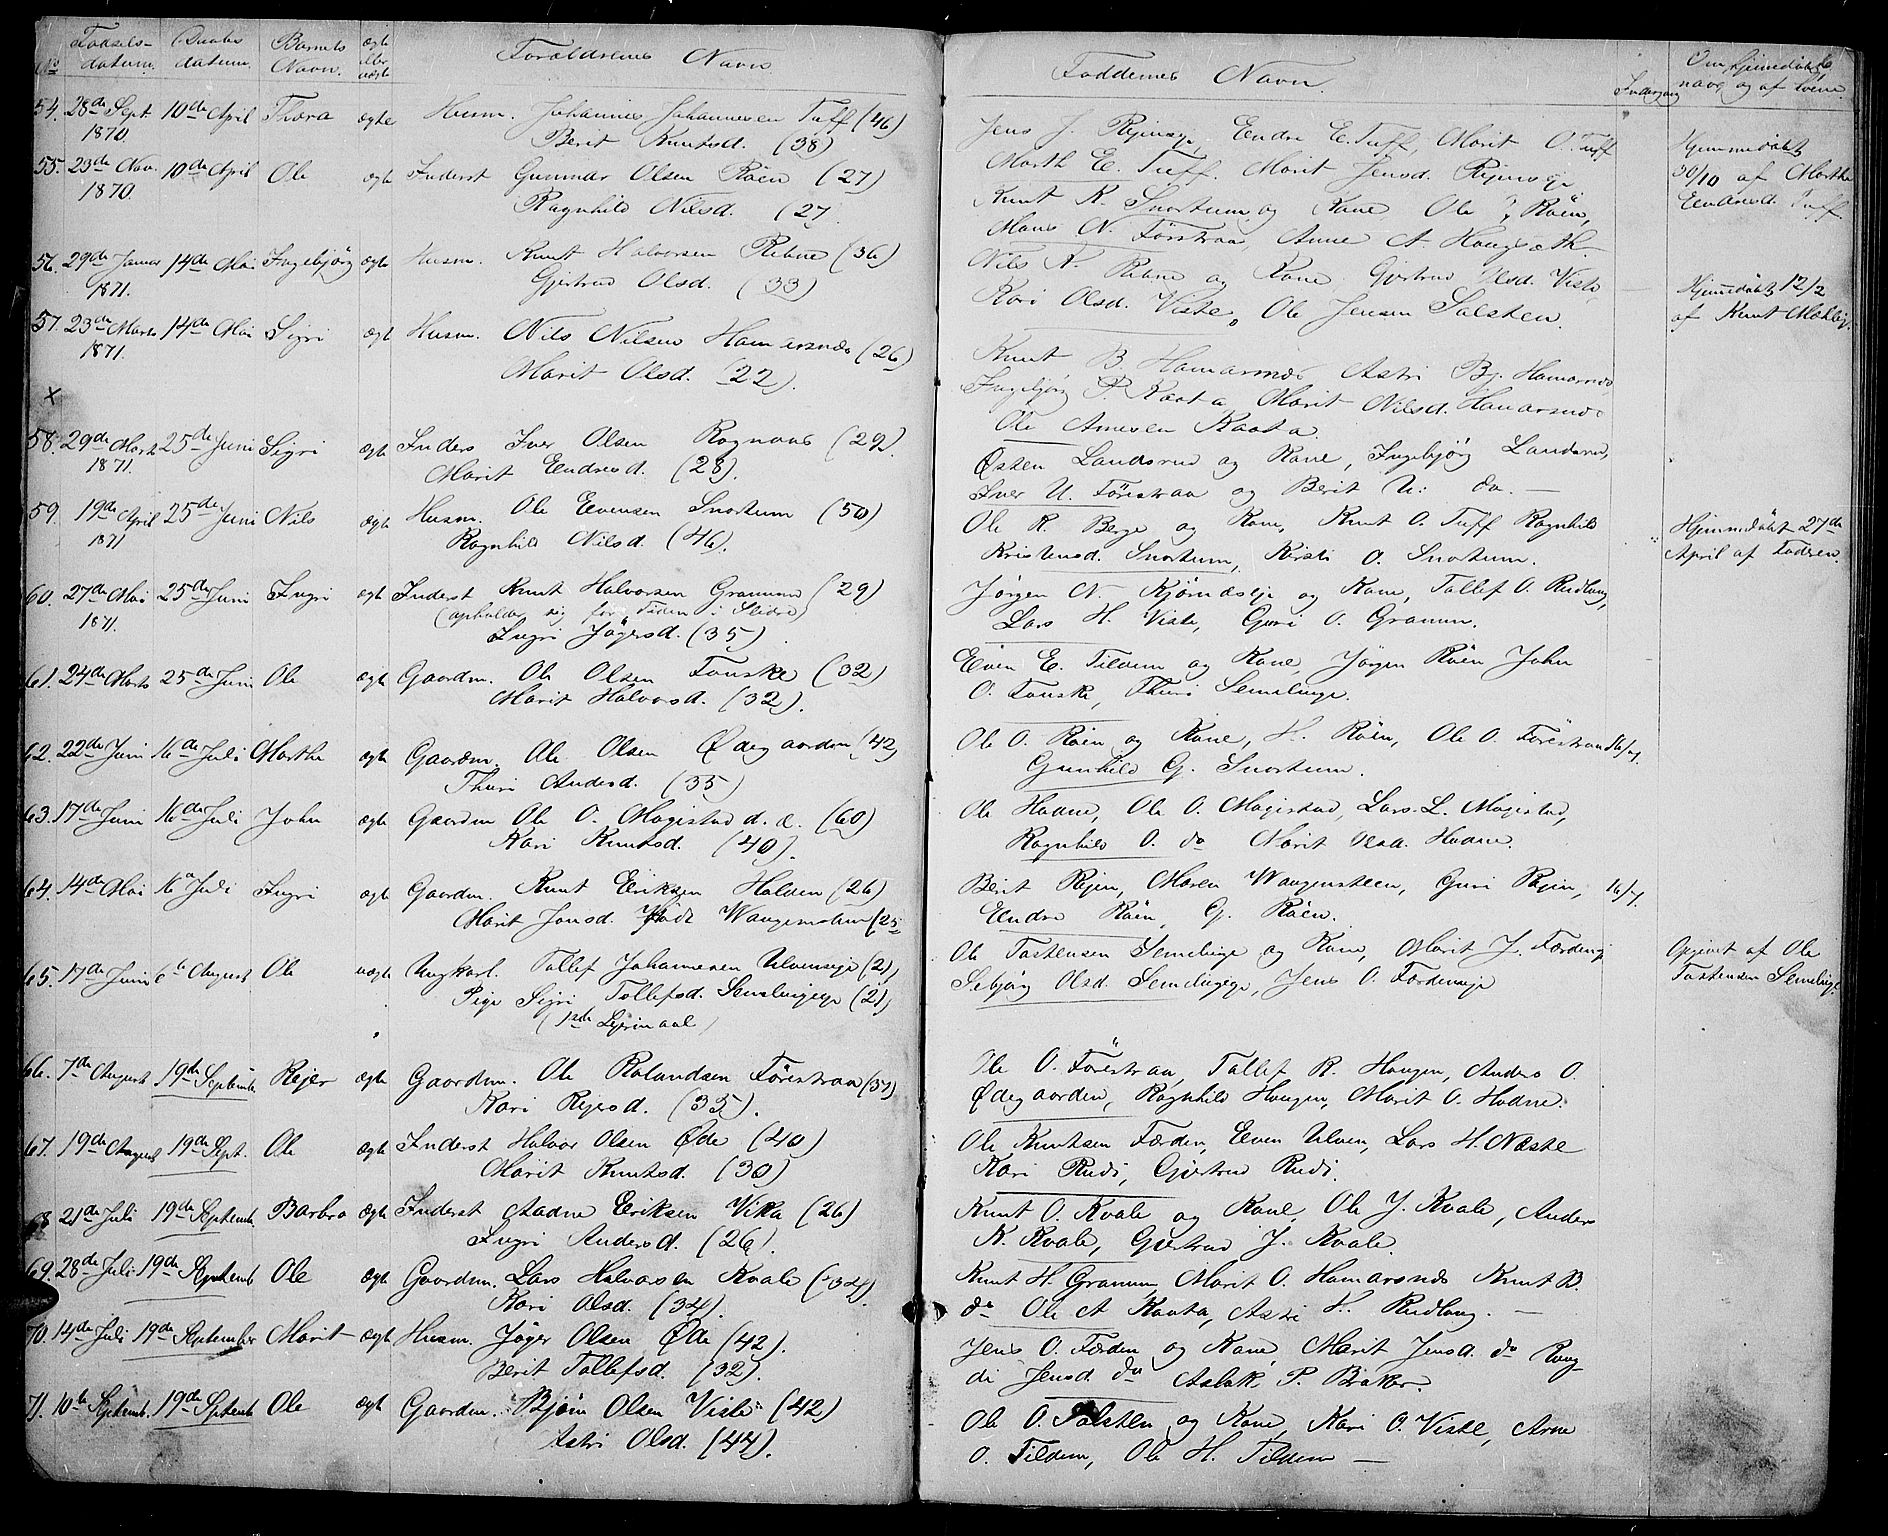 No Fødsels-datum. Daabs datum. Barnets Navn. ægte eller uægte Forældrenes Navn
54. 28de Sept. 10de April Thora ægte Husm. Johannes Johannesen Tuff (46)
1870. Berit Knutsd. (38)
55. 23de Nov. 10de April Ole ægte Inderst Gunnar Olsen Röen (27)
1870. Ragnhild Nilsd. (27
56. 29de Januar 14de Mai Ingebjörg ægte Husm. Knut Halvorsen Rebne (36)
1871. Gjertrud Olsd. (33)
57. 23de Marts 14de Mai Sigri ægte Husm. Nils Nilsen Hamarsnæs (26)
1871. Marit Olsd. (22).
x
58. 29de Marts 25de Juni Sigri ægte Inders Iver Olsen Rognaas (29).
1871. Marit Eendresd. (28).
59. 19de April 25de Juni Nils ægte Husm. Ole Evensen Snortum (50)
1871 Ragnhild Nilsd. (46).
60. 27de Mai 25de Juni Ingri ægte Inderst Knut Halvorsen Gramum (29)
1871. (opholder sig for Tiden i Slidre)
Ingri Jögersd. (35)
61. 24de Marts 25de Juni Ole ægte Gaardm. Ole Olsen Fonske (32)
Marit Halvorsd. (32).
62. 22de Juni 16de Juli Marthe ægte Gaardm. Ole Olsen Ødegaarden (42)
Thuri Andersd. (35)
63. 17de Juni 16de Juli John ægte Gaardm Ole O. Magistad d. æ. (60)
Kari Knutsd. (40).
64. 14de Mai 16de Juli Ingri ægte Gaardm. Knut Eriksen Halden (26)
Marit Jonsd. Wangensteen (25
65. 17de Juni 6te August Ole uægte Ungkarl. Tollef Johannesen Ulvenseje (21)
Pige Sigri Tollefsd. Semelingeje (21)
(1ste Lejermaal)
66. 7de August 19de September Rejer ægte Gaardm. Ole Rolandsen Förestraa (37)
Kari Rejersd. (35).
67. 19de August 19de Sept. Ole ægte Inderst Halvor Olsen Øde (40)
Marit Knutsd. (30)
68 21de Juli 19de September Barbro ægte Inderst Aadne Eriksen Vika (26)
Ingri Andersd. (26).
69. 28de Juli 19de Septemb Ole ægte Gaardm. Lars Halvorsen Kvale (34).
Kari Olsd. (34).
70. 14de Juli 19de September Marit ægte Husm. Jöger Olsen Øde (42).
Berit Tollefsd. (32).
71. 10de Septemb. 19de Septemb Ole ægte Gaardm. Bjørn Olsen Viste (42)
Astri Olsd. (44).
Faddernes Navn. Indergang Om hjemmedöbt navn og af hvem.
Jens J. Rejnseje, Eendre E. Tuff, Marit O. Tuff
Marth E. Tuff. Marit Jensd. Rejnseje
Hjemmedöbt 30/10 af Marthe Eendresd. Tuff.
Knut K. Snortum og Kone Ole Röen,
Mons N. Förstraa, Anne A. Haugsæth.
Nils K. Rebne og Kone Gjertrud Olsd. Viste,
Kari Olsd. Viste, Ole Jensen Salsten.
Hjemmedöbt 12/2 af Knut
Knut B. Hamarsnæs Astri Bj. Hamarsnæs
Ingebjörg P. Kaata, Marit Nilsd. Hamarsnæs
Ole Arnesen Kaata.
Østen Landsrud og Kone, Ingebjörg Landsrud,
Iver U. Förestraa og Berit U. do. —
Ole K. Berge og Kone, Knut O. Tuff Ragnhild
Kristensd. Snortum, Kirsti O. Snortum.
Hjemmedöbt 27de April af Faderen.
Jørgen N. Kjörndseje og Kone, Tollef O. Rudlang,
Lars H. Viste, Guri O. Gramum.
Even E. Tildem og Kone, Jørgen Röen John
O. Fonske, Thuri Semelinge.
Ole O. Röen og Kone, H. Röen, Ole O. Förestraa 16/7.
Gunhild G. Snortum.
Ole Hadne, Ole O. Magistad, Lars L. Magistad,
Ragnhild O. do Marit Olsd. Hadne.
Berit Rejn, Maren Wangensteen, Guri Rejn, 16/7.
Eendre Röen, G. Röen.
Ole Tostensen Semelinge og Kone, Marit J. Færdenseje
Sebjörg Olsd. Semelingeje, Jens O. Færdenseje
Opgivet af Ole Tostensen Semelinge
Ole O. Förestraa, Tollef R. Haugen, Anders O
Ødegaarden, Ragnhild Haugen, Marit O. Hadne.
Ole Knutsen Færden, Even Ulven, Lars H. Næste
Kari Rudi, Gjertrud Rudi.
Knut O. Kvale og Kone, Ole J. Kvale, Anders
K. Kvale, Gjertrud J. Kvale.
Knut H. Gramum, Marit O. Hamarsnæs Knut B.
do Ole A Kaata, Astri H. Rudlang. —
Jens O. Færden og Kone, Marit Jensd. do Rang
di Jensd do Aslak P. Bråker.
Ole O. Salsten og Kone, Kari O. Viste, Arne
O. Tildem, Ole H. Tildem —